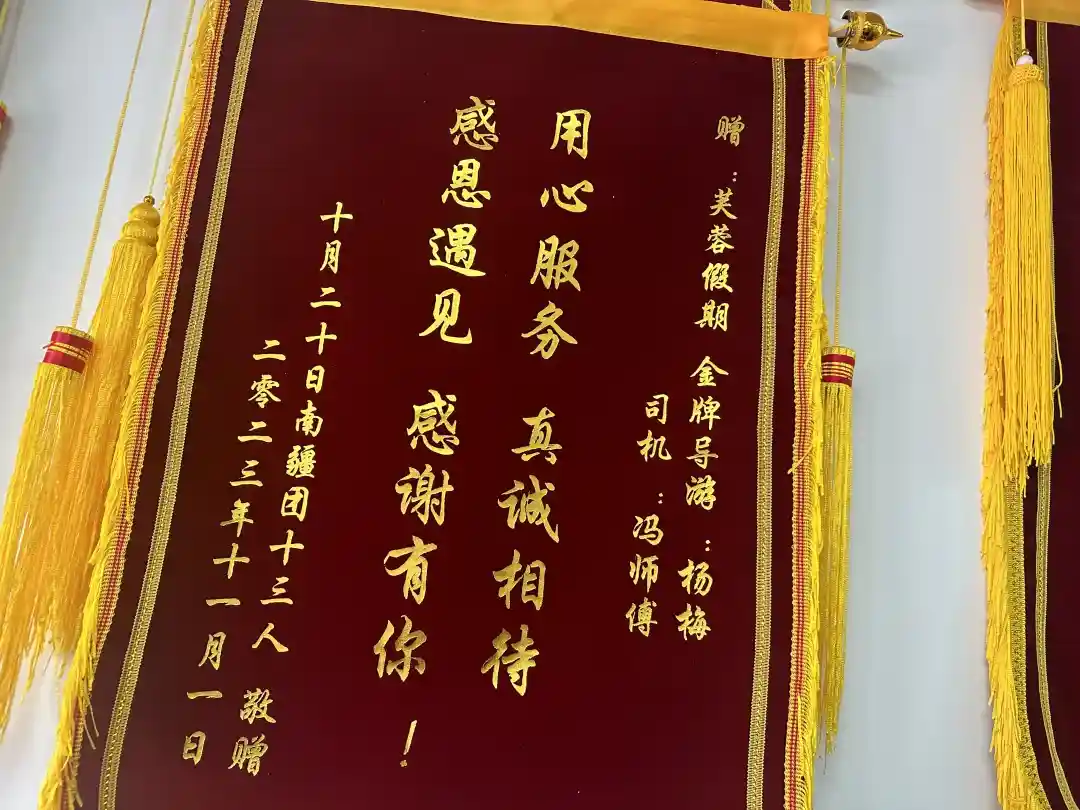 赠：芙蓉假期 金牌导游：杨梅
司机：冯师傅
用心服务 真诚相待
感恩遇见 感谢有你！
十月二十日南疆团十三人 敬赠
二零二三年十一月一日